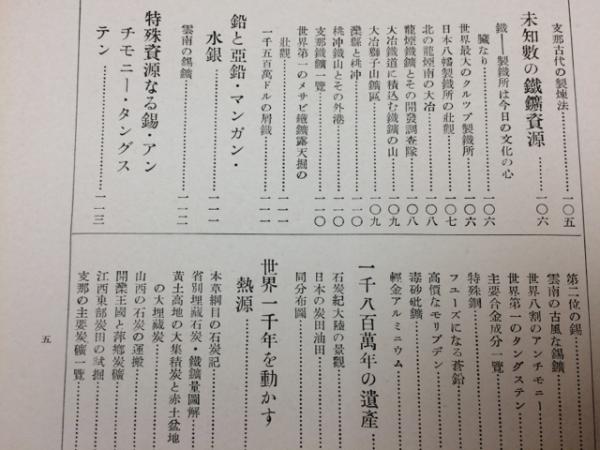 支那古代の製煉法……一〇五
未知數の鐵鑛資源……一〇六
鐵――製鐵所は今日の文化の心
臓なり……一〇六
世界最大のクルツプ製鐵所……一〇六
日本八幡製鐵所の壯觀……一〇七
北の龍煙南の大冶……一〇八
龍煙鐵鑛とその開發調査隊……一〇八
大冶鐵道に積込む鐵鑛の山……一〇九
大冶獅子山鑛區……一〇九
灤縣と桃冲……一一〇
桃冲鐵山とその外港……一一〇
支那鐵鑛一覽……一一〇
世界第一のメサビ鐵鑛露天掘の
壯觀……一一一
一千五百萬ドルの屑鐵……一一一
鉛と亞鉛・マンガン・
水銀……一一一
雲南の錫鑛……一一二
特殊資源なる錫・アン
チモニー・タングス
テン……一一三
第二位の錫……
雲南の古風な錫鑛……
世界八割のアンチモニー……
世界第一のタングステン……
主要合金成分一覽……
特殊鋼……
フユーズになる蒼鉛……
高價なモリブデン……
毒砂砒鑛……
輕金アルミニウム……
一千八百萬年の遺產……
石炭紀大陸の景觀……
日本の炭田油田……
同分布圖……
世界一千年を動かす
熱源……
本草綱目の石炭記……
省別埋藏石炭・鐵鑛量圖解……
黃土高地の大集積炭と赤土盆地
の大埋藏炭……
山西の石炭の運搬……
開灤王國と萍鄉炭鑛……
江西東部炭田の試掘……
支那の主要炭鑛一覽……
五